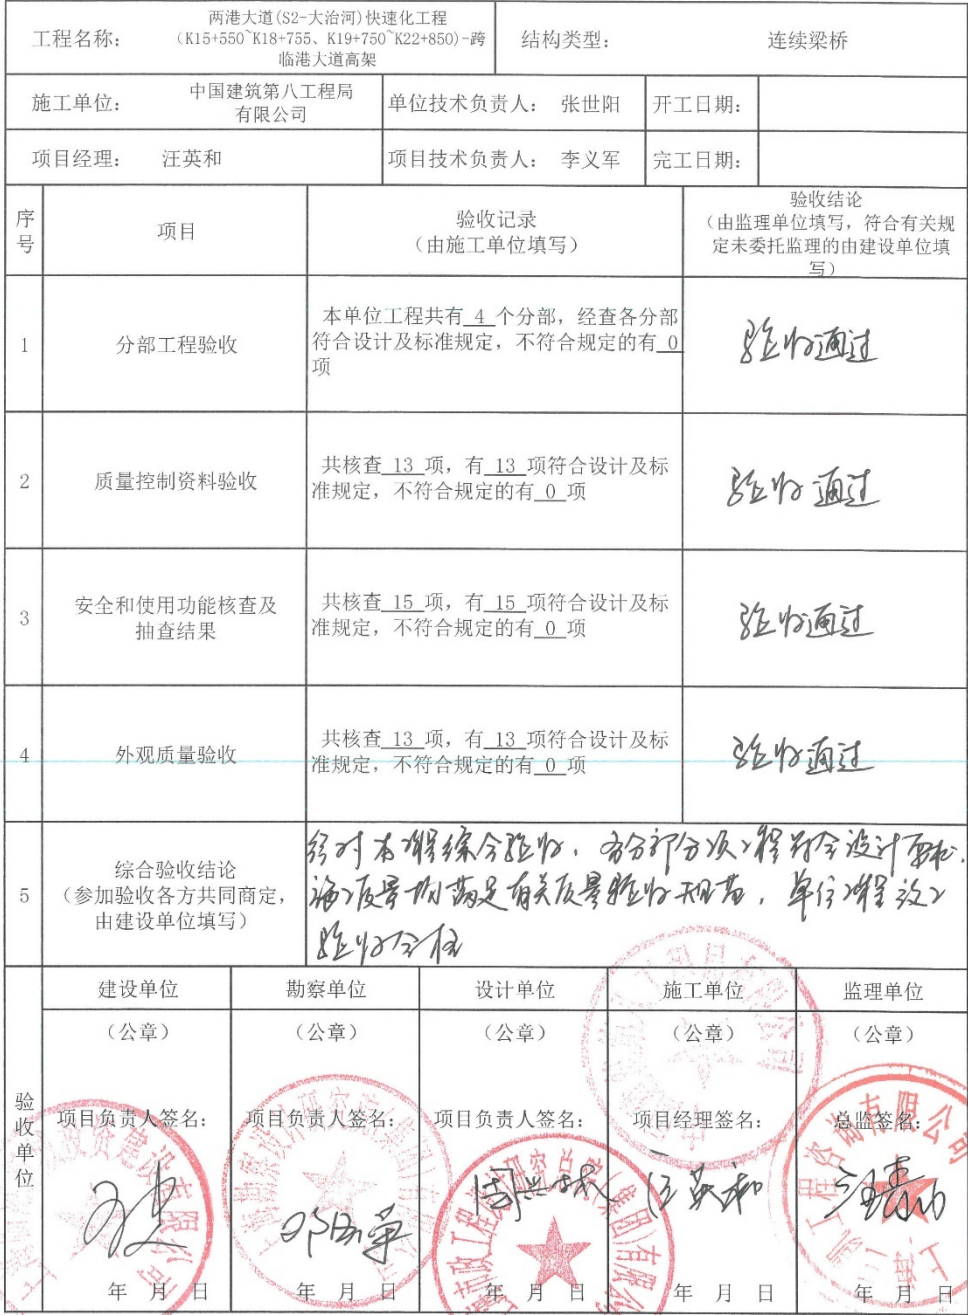 工程名称： 两港大道(S2-大治河)快速化工程
(K15+550~K18+755、K19+750~K22+850)-跨
临港大道高架
结构类型： 连续梁桥
施工单位： 中国建筑第八工程局
有限公司
单位技术负责人： 张世阳 开工日期：
项目经理： 汪英和 项目技术负责人： 李义军 完工日期：
序号 项目 验收记录
（由施工单位填写）
验收结论
（由监理单位填写，符合有关规
定未委托监理的由建设单位填
写）
1 分部工程验收
本单位工程共有 4 个分部，经查各分部
符合设计及标准规定，不符合规定的有 0
项
验收通过
2 质量控制资料验收
共核查 13 项，有 13 项符合设计及标
准规定，不符合规定的有 0 项
验收通过
3 安全和使用功能核查及
抽查结果
共核查 15 项，有 15 项符合设计及标
准规定，不符合规定的有 0 项
验收通过
4 外观质量验收
共核查 13 项，有 13 项符合设计及标
准规定，不符合规定的有 0 项
验收通过
5 综合验收结论
（参加验收各方共同商定，
由建设单位填写）
经对本工程综合验收，各分部分项工程符合设计要求，
施工质量均满足有关质量验收规范，单位工程竣工
验收合格
验收单位
建设单位 勘察单位 设计单位 施工单位 监理单位
（公章） （公章） （公章） （公章） （公章）
项目负责人签名： 项目负责人签名： 项目负责人签名： 项目经理签名： 总监签名：
汪英和
年 月 日 年 月 日 年 月 日 年 月 日 年 月 日